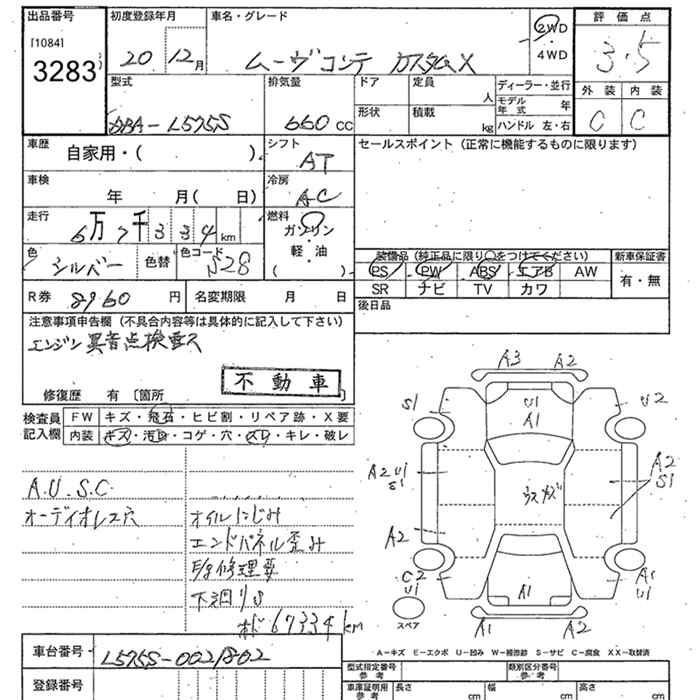 出品番号 初度登録年月 車名・グレード 評価点
[1084] 20 12月 ムーヴコンテ カスタムX 2WD 4WD 3.5
3283 型式 排気量 ドア 定員 人 ディーラー・並行 外装 内装
DBA-L575S 660cc 形状 積載 kg モデル年式 年 ハンドル 左・右 C C
車歴 自家用・( ). シフト AT セールスポイント (正常に機能するものに限ります)
車検 年 月( 日) 冷房 AC
走行 6万7千334km 燃料 ガソリン・軽油( )
色 シルバー 色替 色コード S28 装備品 (純正品に限り○をつけてください) 新車保証書
PS PW ABS エアB AW 有・無
SR ナビ TV カワ
R券 8960円 名変期限 月 日 後日品
注意事項申告欄 (不具合内容等は具体的に記入して下さい)
エンジン異音点検要ス
不動車
修復歴 有 [箇所 ]
検査員 FW キズ・飛石・ヒビ割・リペア跡・X要
記入欄 内装 キズ・汚れ・コゲ・穴・スレ・キレ・破レ
A.U.S.C
オーディオレス穴 オイルにじみ
エンドパネル歪み
F/g修理要
下廻りS
オド67334km
A3 A2
S1 U1 A1 U2
A2 U1 S1 A2 S1
A2
C2 U1 A1 A1 U1
スペア A1 A2
A-キズ E-エクボ U-凹み W-補修跡 S-サビ C-腐食 XX-取替済
車台番号 L575S-0021802 型式指定番号 参考 類別区分番号 参考
登録番号 車庫証明用 参考 長さ cm 幅 cm 高さ cm